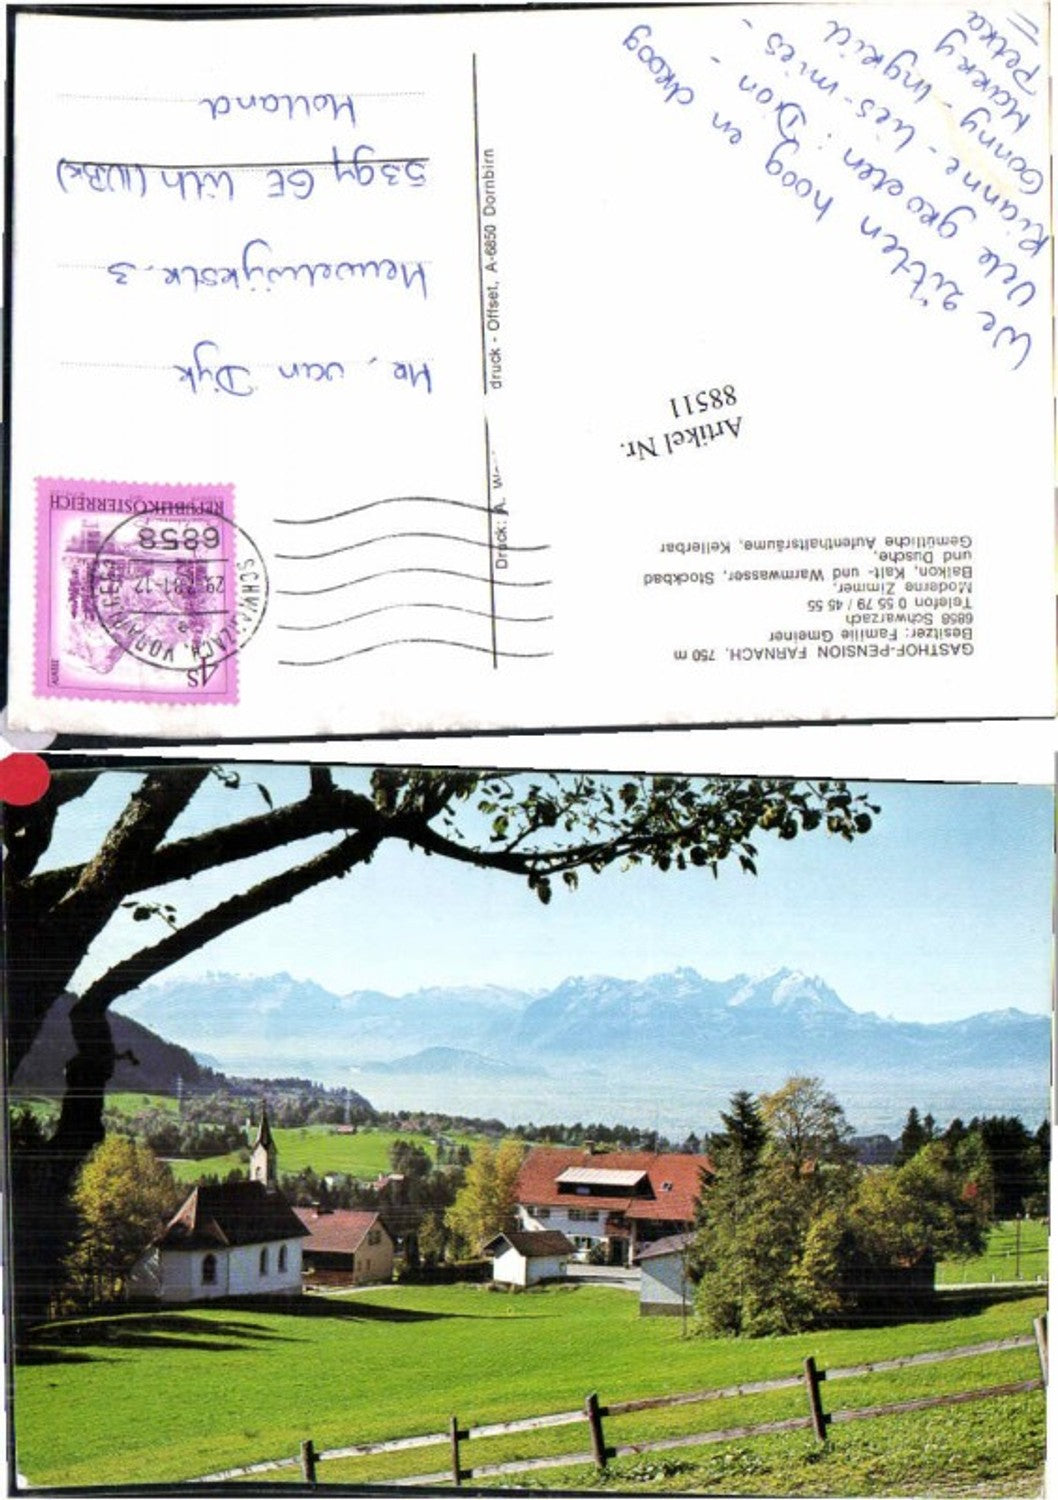 GASTHOF-PENSION FARNACH, 750 m
Besitzer: Familie Gmeiner
6858 Schwarzach
Telefon 0 55 79 / 45 55
Moderne Zimmer,
Balkon, Kalt- und Warmwasser, Stockbad
und Dusche,
Gemütliche Aufenthaltsräume, Kellerbar
Artikel Nr.
88511
We zitten hoog en droog
Vele groeten: Dion -
Rianne - Lies - Mies -
Conny - Ingrid
Harry
Petra
Druck: A.
druck - Offset, A-6850 Dornbirn
4S
REPUBLIK ÖSTERREICH
SCHWARZACH, VORARLBERG
6858
Hr. van Dijk
Heuvelwijkstr. 3
5394 GE Lith (N.Br.)
Holland